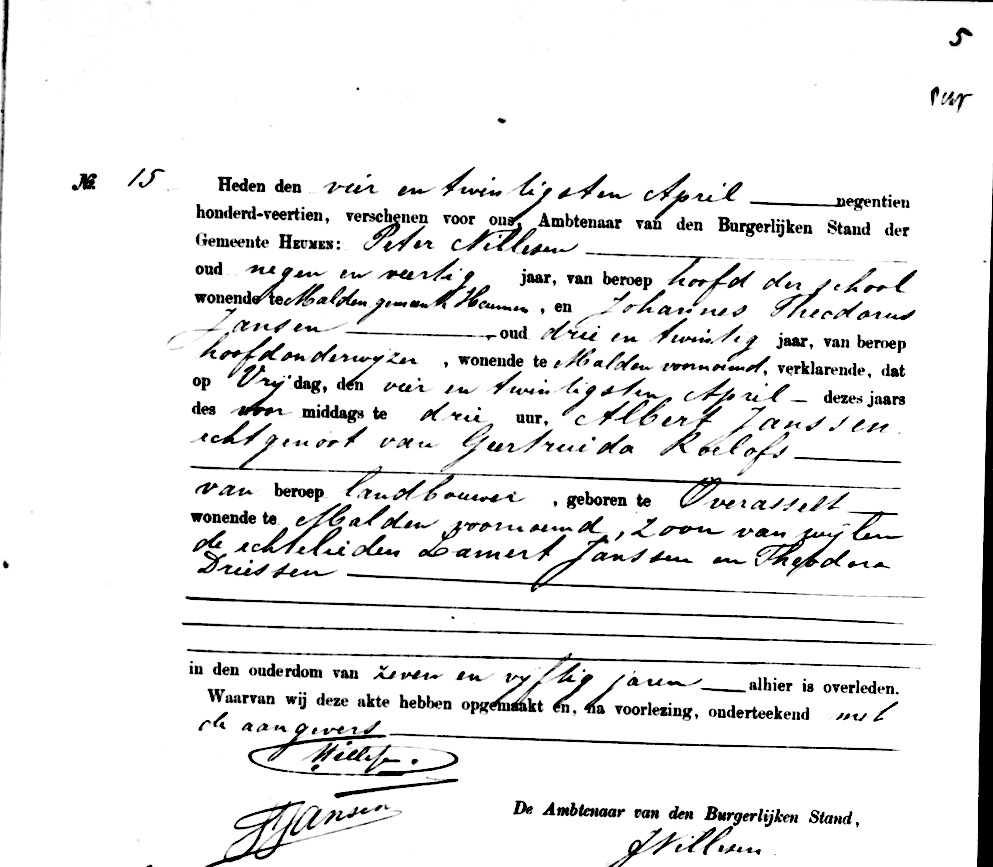 5
No. 15 Heden den vier en twintigsten April negentien
honderd-veertien, verschenen voor ons, Ambtenaar van den Burgerlijken Stand der
Gemeente HEUMEN: Peter Nillesen
oud negen en veertig jaar, van beroep hoofd der school
wonende te Malden gemeente Heumen, en Johannes Theodorus
Jansen, oud drie en twintig jaar, van beroep
hoofdonderwyzer, wonende te Malden voornoemd, verklarende, dat
op Vrijdag, den vier en twintigsten April dezes jaars
des voor middags te drie uur, Albert Janssen
echtgenoot van Geertruida Roelofs
van beroep landbouwer, geboren te Overasselt
wonende te Malden voornoemd, zoon van wijlen
de echtelieden Lamert Janssen en Theodora
Driessen
in den ouderdom van zeven en vyftig jaren alhier is overleden.
Waarvan wij deze akte hebben opgemaakt en, na voorlezing, onderteekend met
de aangevers
Nillesen.
Jansen
De Ambtenaar van den Burgerlijken Stand,
JNillesen